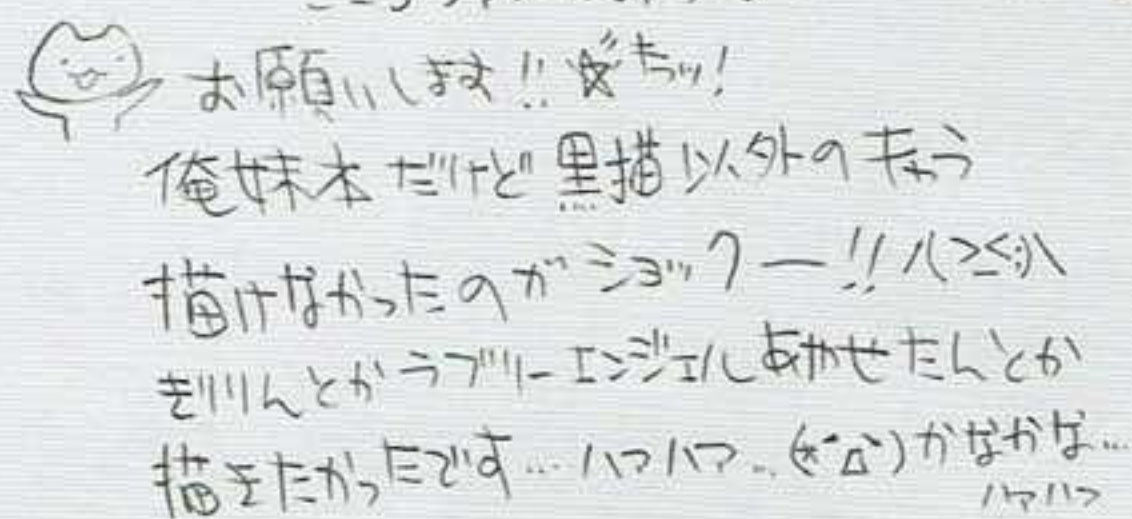 お願いします!! ☆ちッ!
俺妹本だけど黒描以外のキャラ
描けなかったのがショックー!! /(>≦;)\
きりりんとかラブリーエンジェルあやせたんとか
描きたかったです… ハァハァ… (*´Д`) かなかな…
ハァハァ